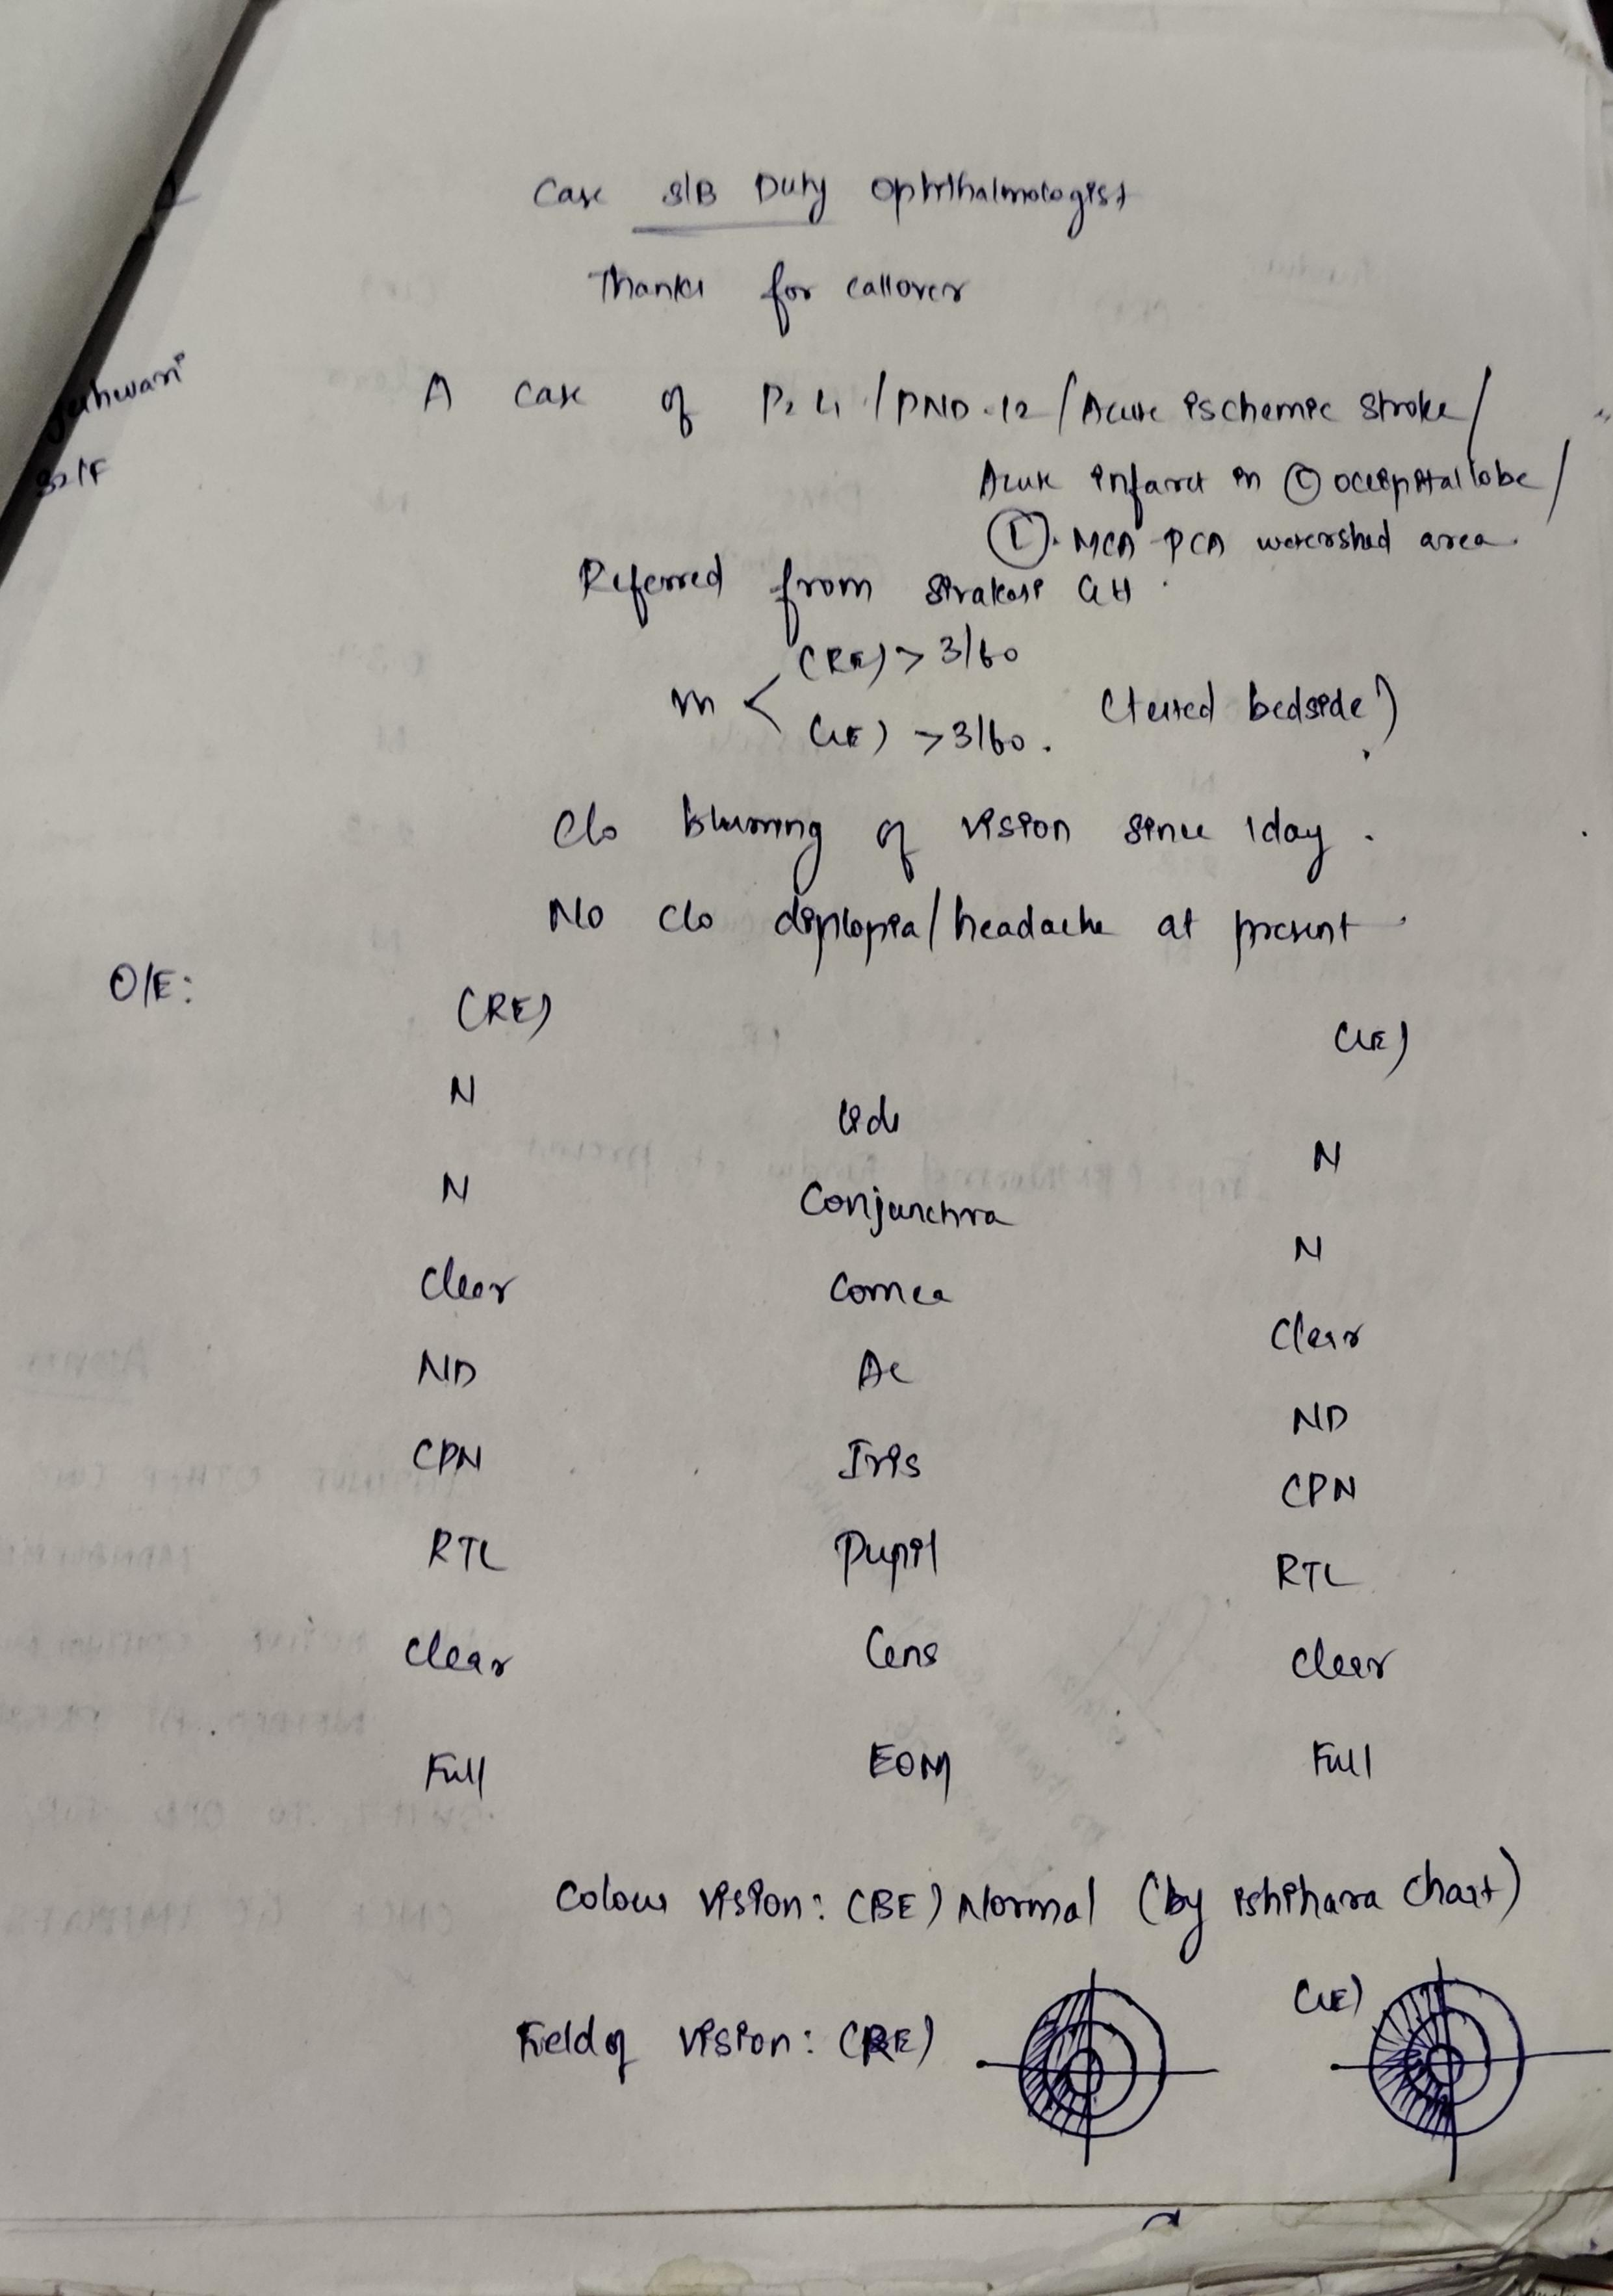 Case S/B Duty Ophthalmologist
Thanks for callover
32/F
A case of P2L1 / PND-12 / Acute ischemic stroke /
Acute infarct in occipital lobe /
MCA-PCA watershed area.
Referred from Sivakasi GH.
(RE) > 3/60
Vn <
(LE) > 3/60. (tested bedside)
C/o blurring of vision since 1 day.
No C/o diplopia / headache at present.
O/E:
(RE) (LE)
N Lids N
N Conjunctiva N
Clear Cornea Clear
ND AC ND
CPN Iris CPN
RTL Pupil RTL
Clear Lens Clear
Full EOM Full
Colour vision: (BE) Normal (by ishihara chart)
Field of vision: (RE) (LE)